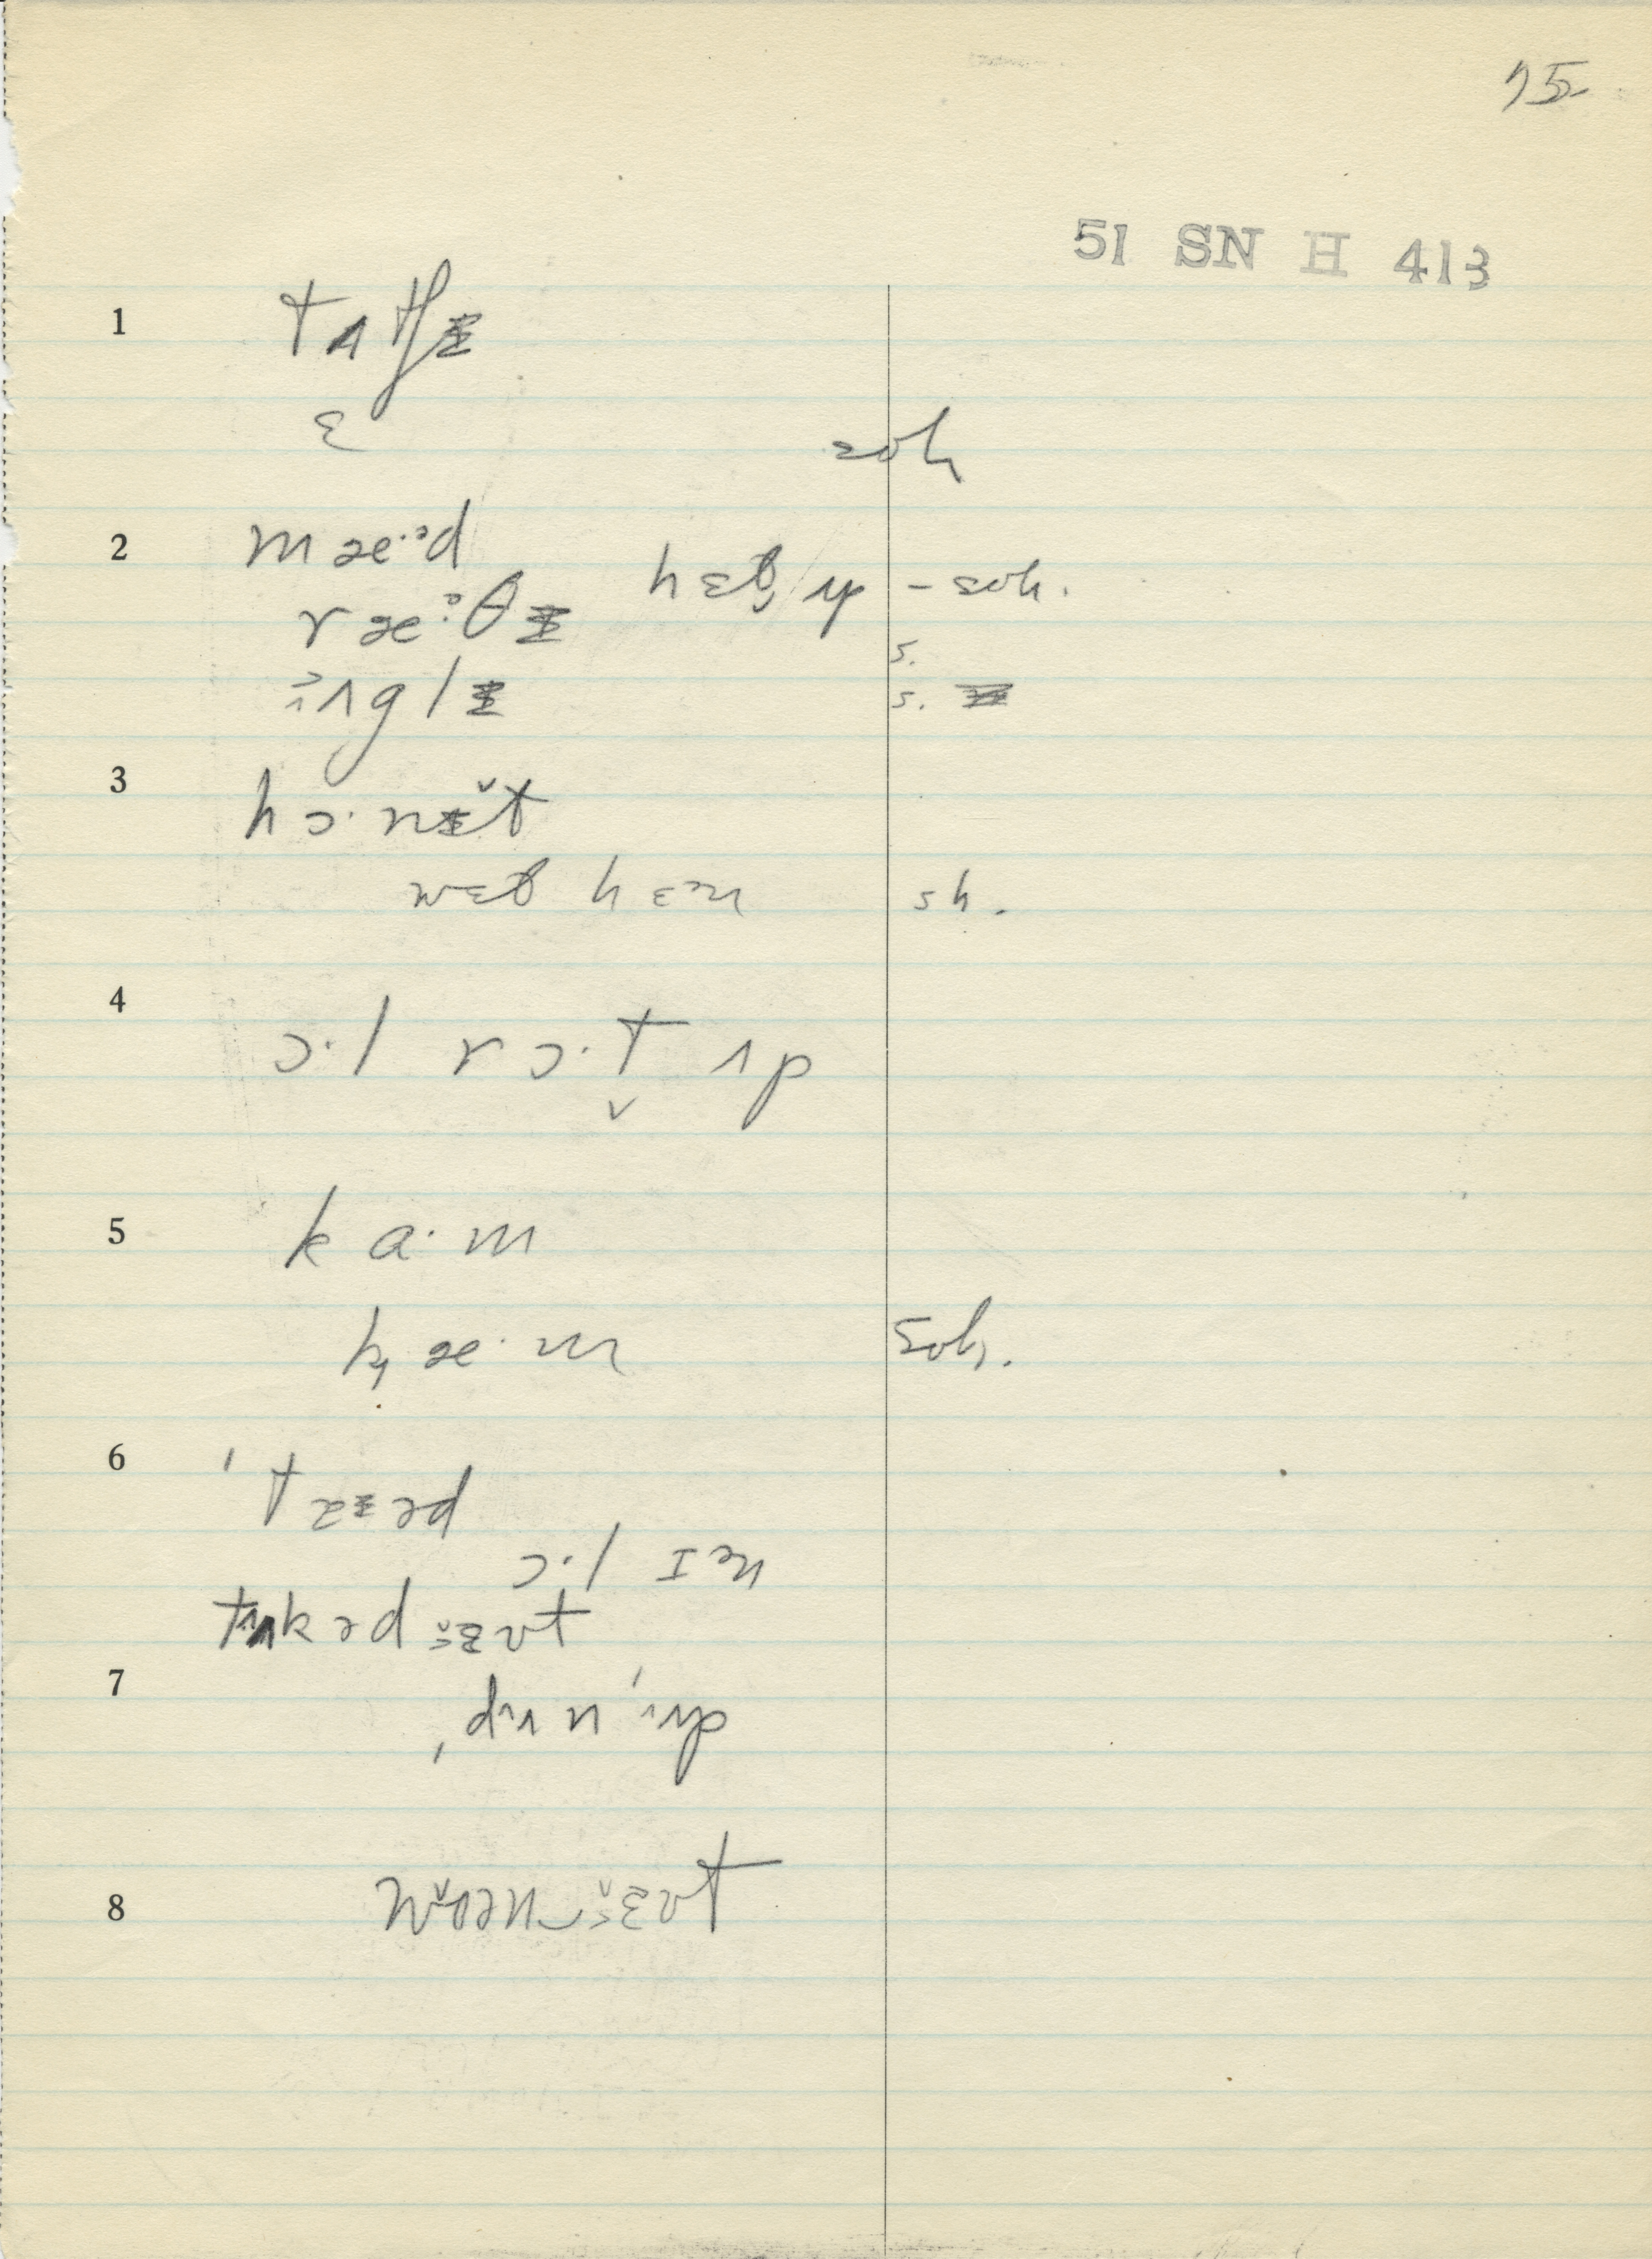 75
51 SN H 413
1 tʌtʃɨ
ɛ
soh
2 mæ·ᵊd
hɛt̬ ʌp – soh.
ræ·ᵊθɨ
s.
ʌglɨ
s.
3 hɔ·nɨ̆t
wɛt hɛn sh.
4 ɔ·l rɔ·t̬ ʌp
5 ka·m
kæ·m soh.
6 ˈtaɨəd
ɔ·l ɪn
tʌkəd ɛʊt
7 ˌdʌnˈʌp
8 wɔən‿ɛʊt